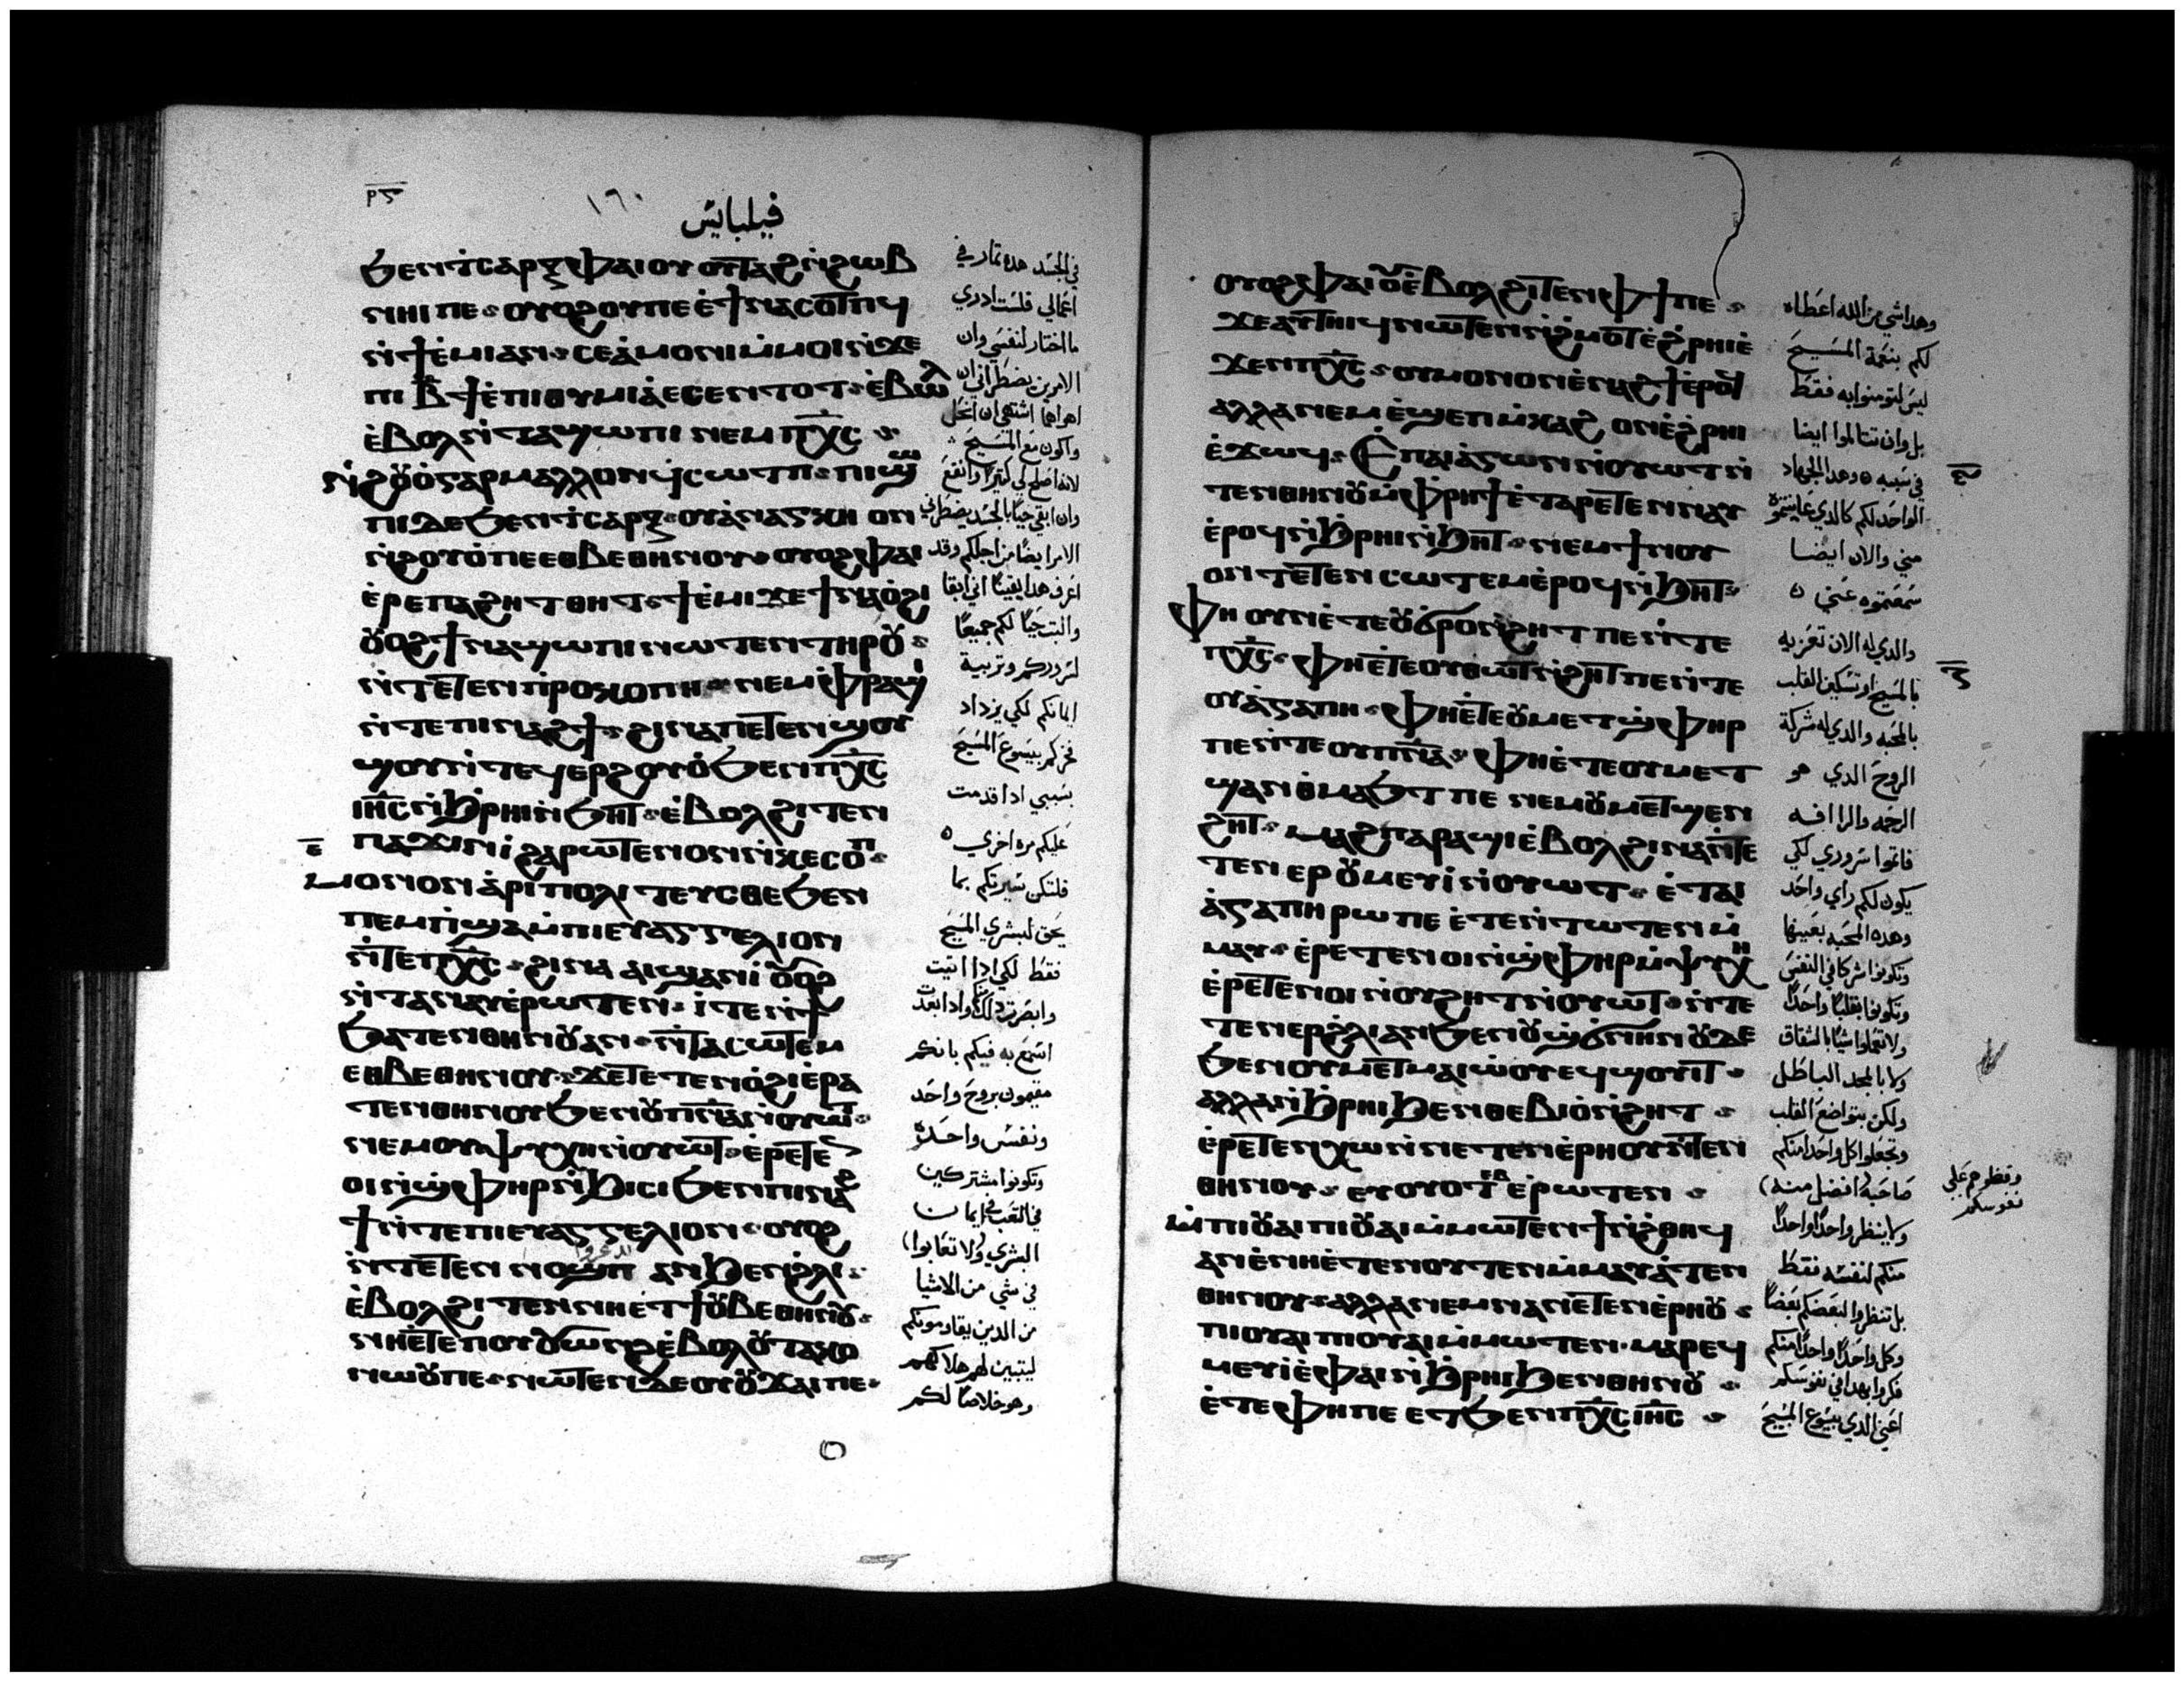 ⲣⲋ
١٦٠
فيلبايس
ϧⲉⲛⲧⲥⲁⲣⲝ ⲫⲁⲓ ⲟⲩⲟⲩⲧⲁϩ ⲛϩⲱⲃ
ⲛⲏⲓ ⲡⲉ ⲟⲩⲟϩ ⲟⲩ ⲡⲉ ⲉϯⲛⲁⲥⲟⲧⲡϥ
ⲛϯⲉⲙⲓ ⲁⲛ ⲥⲉⲁⲙⲟⲛⲓ ⲙⲙⲟⲓ ⲛϫⲉ
ⲡⲓⲃ̅ ϯⲉⲡⲓⲑⲩⲙⲓⲁ ⲉⲥϧⲉⲛⲧⲟⲧ ⲉⲃⲱⲗ
ⲉⲃⲟⲗ ⲛⲧⲁϣⲱⲡⲓ ⲛⲉⲙ ⲡⲭ̅ⲥ̅
ⲛϩⲟⲩⲟ ⲅⲁⲣ ⲙⲁⲗⲗⲟⲛ ϥⲥⲱⲧⲡ ⲡⲓϣⲱ
ⲡⲓ ⲇⲉ ϧⲉⲛⲧⲥⲁⲣⲝ ⲟⲩⲁⲛⲁⲅⲕⲏ ⲟⲛ
ⲛϩⲟⲩⲟ ⲡⲉ ⲉⲑⲃⲉⲑⲏⲛⲟⲩ ⲟⲩⲟϩ ⲫⲁⲓ
ⲉⲣⲉ ⲡⲁϩⲏⲧ ⲑⲏⲧ ϯⲉⲙⲓ ϫⲉ ϯⲛⲁⲟϩⲓ
ⲟⲩⲟϩ ϯⲛⲁϣⲱⲡⲓ ⲛⲱⲧⲉⲛ ⲧⲏⲣⲟⲩ
ⲛⲧⲉⲧⲉⲛⲡⲣⲟⲕⲟⲡⲏ ⲛⲉⲙ ⲫⲣⲁϣⲓ
ⲛⲧⲉ ⲡⲓⲛⲁϩϯ ϩⲓⲛⲁ ⲡⲉⲧⲉⲛϣⲟⲩ
ϣⲟⲩ ⲛⲧⲉϥⲉⲣϩⲟⲩⲟ ϧⲉⲛ ⲡⲭ̅ⲥ̅
ⲓⲏ̅ⲥ̅ ⲛϧⲣⲏⲓ ⲛϧⲏⲧ ⲉⲃⲟⲗϩⲓⲧⲉⲛ
ⲡⲁϫⲓⲛⲓ ϩⲁⲣⲱⲧⲉⲛ ⲟⲛ ⲛⲕⲉⲥⲟⲡ
ⲙⲟⲛⲟⲛ ⲁⲣⲓⲡⲟⲗⲓⲧⲉⲩⲥⲑⲉ ϧⲉⲛ
ⲡⲉⲙⲡϣⲁ ⲙⲡⲓⲉⲩⲁⲅⲅⲉⲗⲓⲟⲛ
ⲛⲧⲉ ⲡⲭ̅ⲥ̅ ϩⲓⲛⲁ ⲁⲓϣⲁⲛⲓ ⲟⲩⲟϩ
ⲛⲧⲁⲛⲁⲩ ⲉⲣⲱⲧⲉⲛ ⲓⲧⲉ ⲛϯ
ϧⲁⲧⲉⲛⲑⲏⲛⲟⲩ ⲁⲛ ⲛⲧⲁⲥⲱⲧⲉⲙ
ⲉⲑⲃⲉⲑⲏⲛⲟⲩ ϫⲉ ⲧⲉⲧⲉⲛⲟϩⲓ ⲉⲣⲁ
ⲧⲉⲛⲑⲏⲛⲟⲩ ϧⲉⲛ ⲟⲩⲡⲛ̅ⲁ̅ ⲛⲟⲩⲱⲧ
ⲛⲉⲙ ⲟⲩⲯⲩⲭⲏ ⲛⲟⲩⲱⲧ ⲉⲣⲉⲧⲉⲛ
ⲟⲓ ⲛϣⲫⲏⲣ ⲛϧⲓⲥⲓ ϧⲉⲛ ⲡⲓⲛⲁϩ
ϯ ⲛⲧⲉ ⲡⲓⲉⲩⲁⲅⲅⲉⲗⲓⲟⲛ ⲟⲩⲟϩ
ⲛⲧⲉⲧⲉⲛ ⲛⲟϣⲡ ⲁⲛ ϧⲉⲛ ϩⲗⲓ
ⲉⲃⲟⲗϩⲓⲧⲉⲛ ⲛⲏⲉⲧϯ ⲟⲩⲃⲉⲑⲏⲛⲟⲩ
ⲛⲏⲉⲧⲉ ⲡⲟⲩⲟⲩⲱⲛϩ ⲉⲃⲟⲗ ⲟⲩⲧⲁⲕⲟ
ⲛⲱⲟⲩ ⲡⲉ ⲛⲱⲧⲉⲛ ⲇⲉ ⲟⲩⲟⲩϫⲁⲓ ⲡⲉ
في الجسد هده تمار في
اعمالي فلست ادري
ما اختار لنفسي وان
الامرين يضطراني ان
اهواهما اشتهي ان انحل
واكون مع المسيح
لانه اصلح لي كثيرا وانفع
وان ابقي حيا بالجسد يضطرني
الامر ايضا من اجلكم وقد
اعرف هدا يقينا اني ابقا
والبت حيا لكم جميعا
لسروركم وتربية
ايمانكم لكي يزداد
فخركم بيسوع المسيح
بسببي ادا قدمت
عليكم مره اخري
فلتكن سيرتكم بما
يحق لبشري المسيح
فقط لكي ادا اتيت
وابصرت دلك وادا ابعدت
اسمع به فيكم بانكم
مقيمون بروح واحد
ونفس واحده
وتكونوا مشتركين
في التعب في ايمان
البشري ولا تعابوا
في شي من الاشيا
من الدين يقاومونكم
ليتبين لهم هلاكهم
وهو خلاصا لكم
ⲟⲩⲟϩ ⲫⲁⲓ ⲟⲩⲉⲃⲟⲗϩⲓⲧⲉⲛ ⲫϯ ⲡⲉ
ϫⲉ ⲁⲩⲧⲏⲓϥ ⲛⲱⲧⲉⲛ ⲛϩⲙⲟⲧ ⲉϩⲣⲏⲓ ⲉ
ϫⲉⲛ ⲡⲭ̅ⲥ̅ ⲟⲩⲙⲟⲛⲟⲛ ⲉⲛⲁϩϯ ⲉⲣⲟϥ
ⲁⲗⲗⲁ ⲛⲉⲙ ⲉϣⲉⲡⲙⲕⲁϩ ⲟⲛ ⲉϩⲣⲏⲓ
ⲉϫⲱϥ ⲉⲡⲁⲓⲁⲅⲱⲛ ⲛⲟⲩⲱⲧ ⲛ
ⲧⲉⲛⲑⲏⲛⲟⲩ ⲙⲫⲣⲏϯ ⲉⲧⲁⲣⲉⲧⲉⲛⲛⲁⲩ
ⲉⲣⲟϥ ⲛϧⲣⲏⲓ ⲛϧⲏⲧ ⲛⲉⲙ ϯⲛⲟⲩ
ⲟⲛ ⲧⲉⲧⲉⲛⲥⲱⲧⲉⲙ ⲉⲣⲟϥ ⲛϧⲏⲧ
ⲫⲏ ⲟⲩⲛ ⲉⲧⲉ ⲟⲩϭⲣⲟ ⲛϩⲏⲧ ⲡⲉ ⲛⲧⲉ
ⲡⲭ̅ⲥ̅ ⲫⲏⲉⲧⲉ ⲟⲩⲑⲱⲧ ⲛϩⲏⲧ ⲡⲉ ⲛⲧⲉ
ⲟⲩⲁⲅⲁⲡⲏ ⲫⲏⲉⲧⲉ ⲟⲩⲙⲉⲧϣⲫⲏⲣ
ⲡⲉ ⲛⲧⲉ ⲟⲩⲡⲛ̅ⲁ̅ ⲫⲏⲉⲧⲉ ⲟⲩⲙⲉⲧ
ϣⲁⲛⲑⲙⲁϧⲧ ⲡⲉ ⲛⲉⲙ ⲟⲩⲙⲉⲧϣⲉⲛ
ϩⲏⲧ ⲙⲁϩ ⲡⲁⲣⲁϣⲓ ⲉⲃⲟⲗ ϩⲓⲛⲁ ⲛⲧⲉ
ⲧⲉⲛⲉⲣ ⲟⲩⲙⲉⲩⲓ ⲛⲟⲩⲱⲧ ⲉⲧⲁⲓ
ⲁⲅⲁⲡⲏ ⲣⲱ ⲡⲉ ⲉⲧⲉⲛⲧⲱⲧⲉⲛ ⲙ
ⲙⲁⲩ ⲉⲣⲉⲧⲉⲛⲟⲓ ⲛϣⲫⲏⲣ ⲙⲯⲩⲭⲏ
ⲉⲣⲉⲧⲉⲛⲟⲓ ⲛⲟⲩϩⲏⲧ ⲛⲟⲩⲱⲧ ⲛⲧⲉ
ⲧⲉⲛⲉⲣϩⲗⲓ ⲁⲛ ϧⲉⲛ ⲟⲩϣϭⲛⲏⲛ ⲟⲩⲇⲉ
ϧⲉⲛ ⲟⲩⲙⲉⲧⲙⲁⲓⲱⲟⲩ ⲉϥϣⲟⲩⲓⲧ
ⲁⲗⲗⲁ ⲛϧⲣⲏⲓ ϧⲉⲛ ⲑⲉⲃⲓⲟ ⲛϩⲏⲧ
ⲉⲣⲉⲧⲉⲛⲭⲱ ⲛⲛⲉⲧⲉⲛⲉⲣⲏⲟⲩ ⲛⲧⲉⲛ
ⲑⲏⲛⲟⲩ ⲉⲩⲟⲩⲟⲧⲉⲃ ⲉⲣⲱⲧⲉⲛ
ⲙⲡⲓⲟⲩⲁⲓ ⲡⲓⲟⲩⲁⲓ ⲙⲙⲱⲧⲉⲛ ϯⲛϩⲑⲏϥ
ⲁⲛ ⲉⲛⲏⲉⲧⲉⲛⲟⲩⲧⲉⲛ ⲙⲙⲁⲩⲁⲧⲉⲛ
ⲑⲏⲛⲟⲩ ⲁⲗⲗⲁ ⲛⲉⲙ ⲛⲁⲛⲉⲧⲉⲛⲉⲣⲏⲟⲩ
ⲡⲓⲟⲩⲁⲓ ⲡⲓⲟⲩⲁⲓ ⲙⲙⲱⲧⲉⲛ ⲙⲁⲣⲉϥ
ⲙⲉⲩⲓ ⲉⲫⲁⲓ ⲛϧⲣⲏⲓ ϧⲉⲛⲑⲏⲛⲟⲩ
ⲉⲧⲉ ⲫⲏ ⲡⲉ ⲉⲧϧⲉⲛ ⲡⲭ̅ⲥ̅ ⲓⲏ̅ⲥ̅
وهدا شي من الله اعطاه
لكم بنعمة المسيح
ليس لتومنوا به فقط
بل وان تتالموا ايضا
في سببه وهدا الجهاد
الواحد لكم كالدي عاينتموه
مني والان ايضا
سمعتموه عني
والدي له الان تعزيه
بالمسيح او تسكين القلب
بالمحبه والدي له شركة
الروح الدي هو
الرحمه والراافه
فاتموا سروري لكي
يكون لكم راي واحد
وهده المحبه بعينها
وتكونوا شركا في النفس
وتكونوا بقلبا واحدا
ولا تعملوا شيا بالشقاق
ولا بالمجد الباطل
ولكن بتواضع القلب
وتجعلوا كل واحدا منكم
صاحبه (افضل منه)
ولا ينظر واحدا واحدا
منكم لنفسه فقط
بل تنظروا لبعضكم بعضا
وكل واحدا واحدا منكم
فكروا بهدا في نفوسكم
اعني الدي بيسوع المسيح
نفوسكم